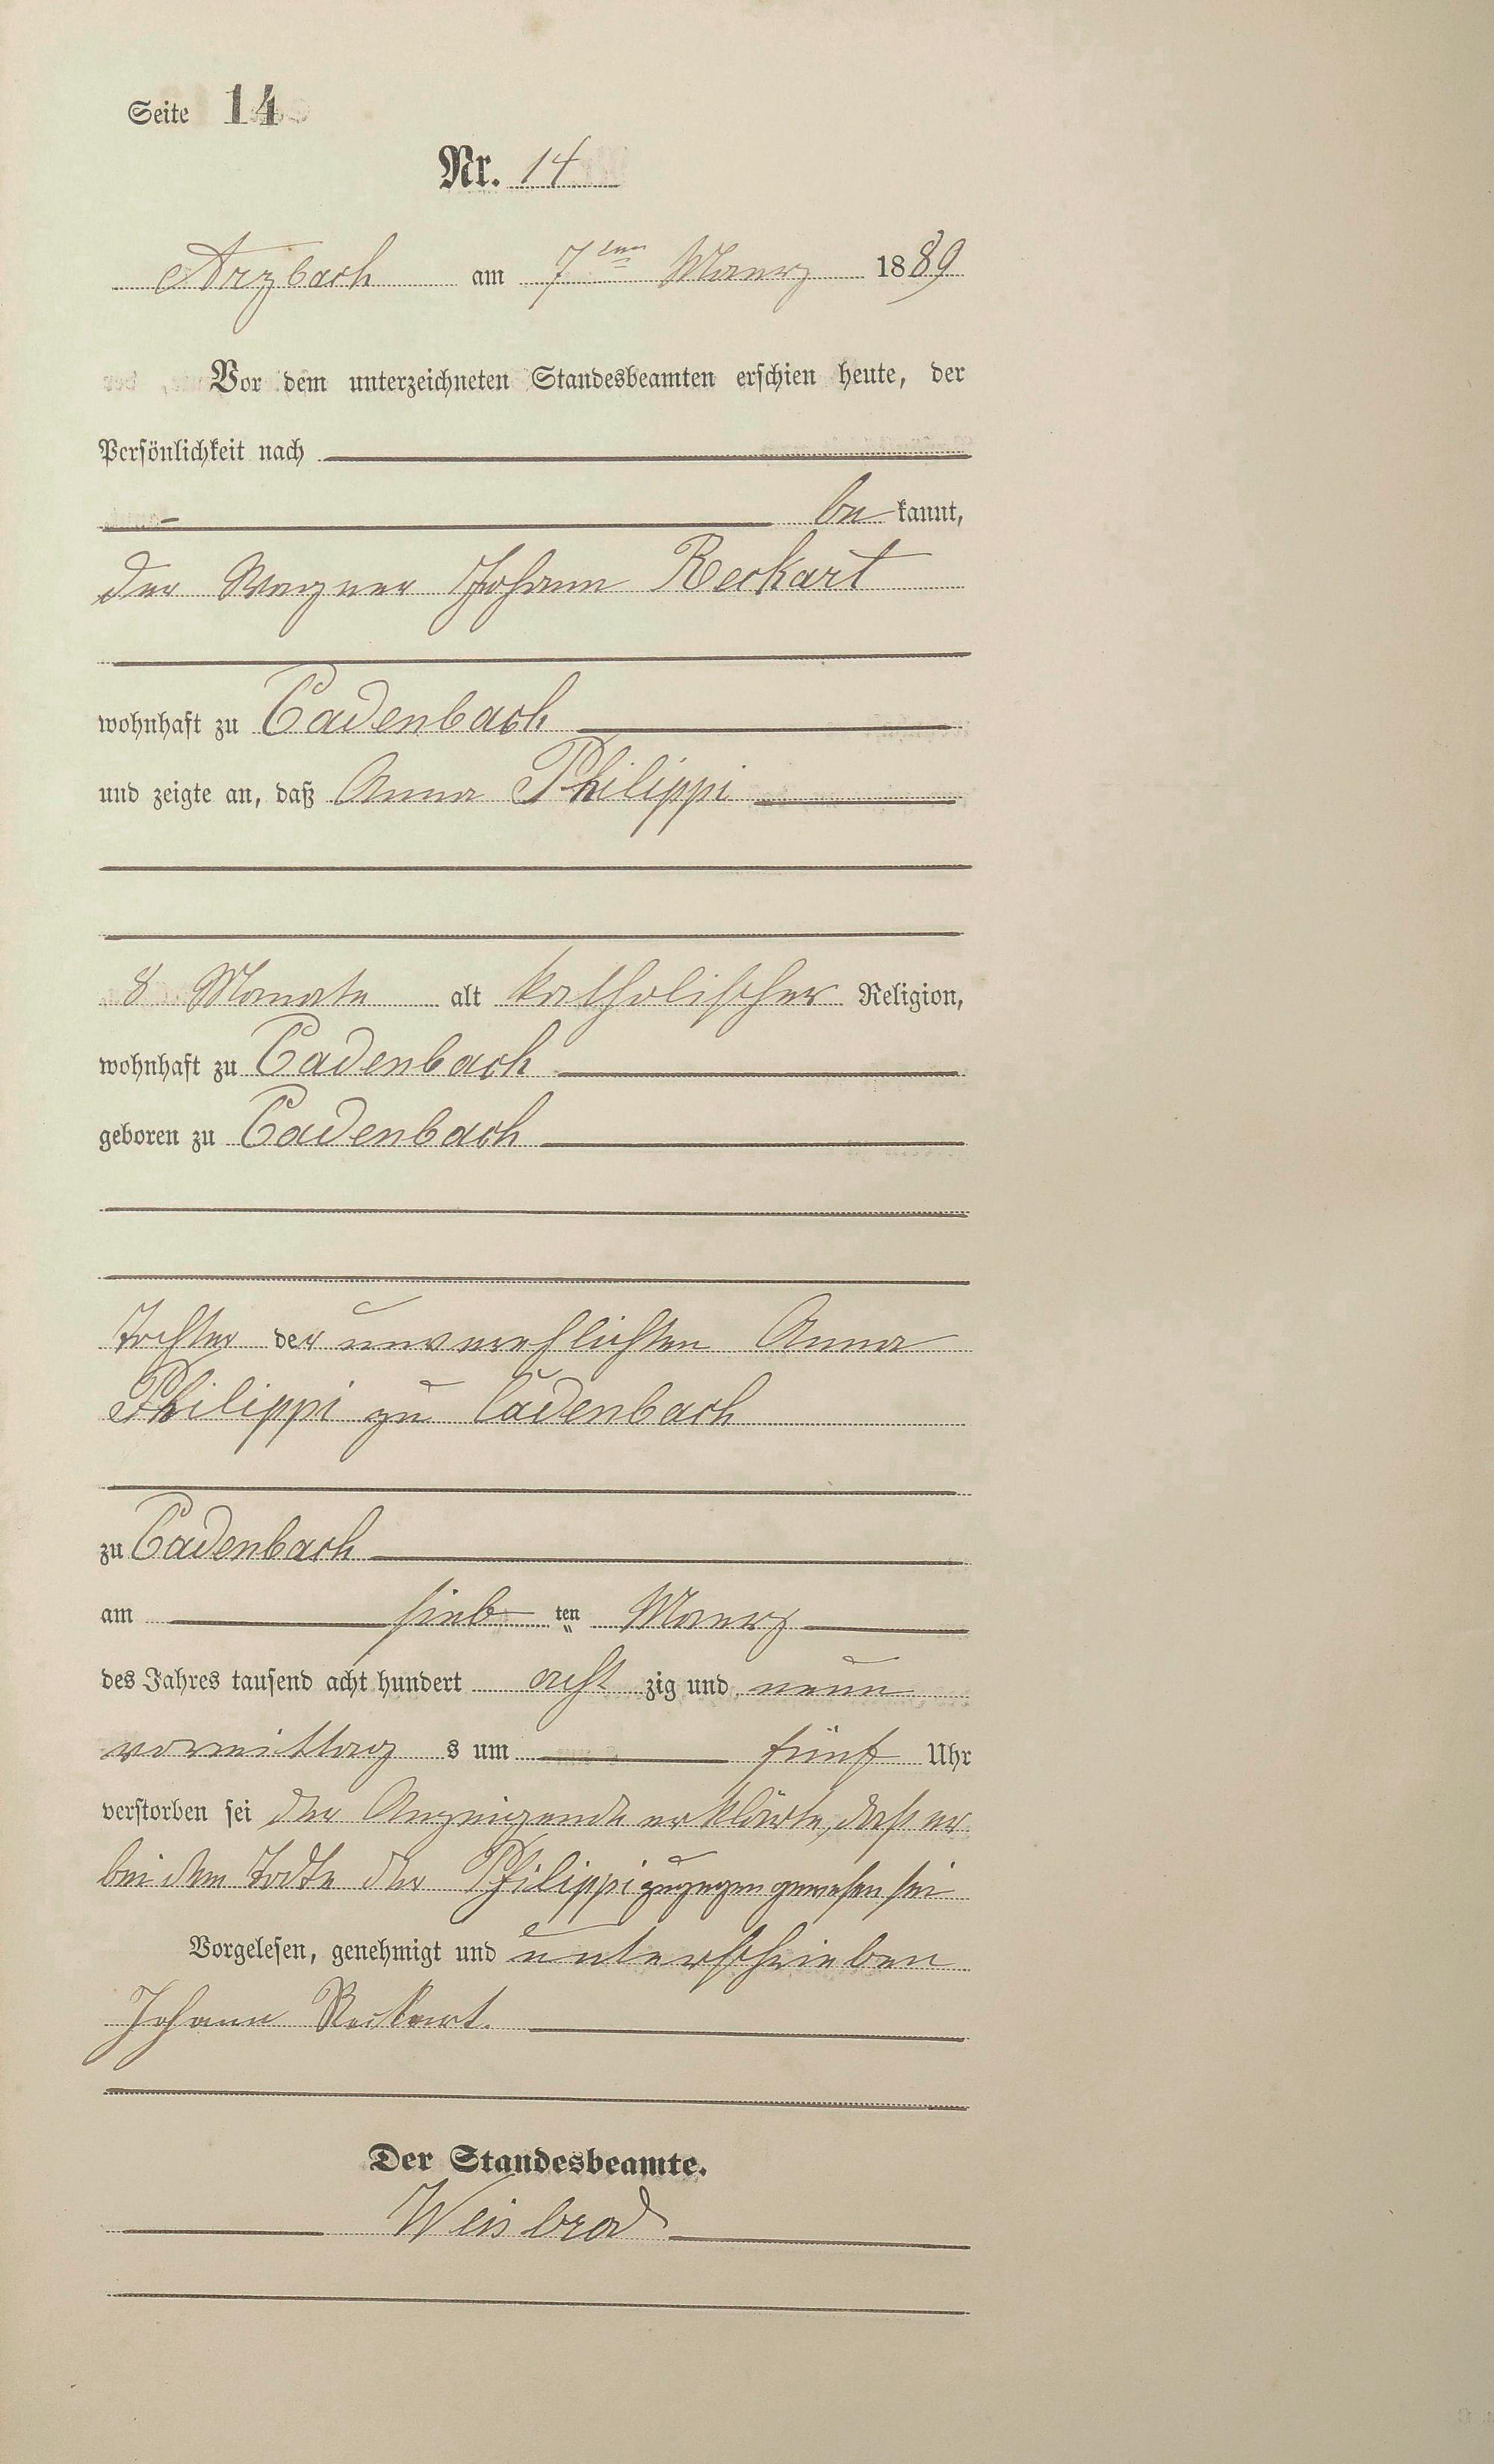 Seite 14
Nr. 14
Arzbach am 7ten Maerz 1889
Vor dem unterzeichneten Standesbeamten erschien heute, der
Persönlichkeit nach
be kannt,
der Wagner Johann Reckart
wohnhaft zu Cadenbach
und zeigte an, daß Anna Philippi
8 Monate alt katholischer Religion,
wohnhaft zu Cadenbach
geboren zu Cadenbach
Tochter der unverehlichten Anna
Philippi zu Cadenbach
zu Cadenbach
am sieb ten Maerz
des Jahres tausend acht hundert acht zig und neun
vormittag s um fünf Uhr
verstorben sei der Anzeigende erklärte, daß er
bei dem Todte der Philippi zugegen gewesen sei
Vorgelesen, genehmigt und unterschrieben
Johann Reckart.
Der Standesbeamte.
Weisbrod